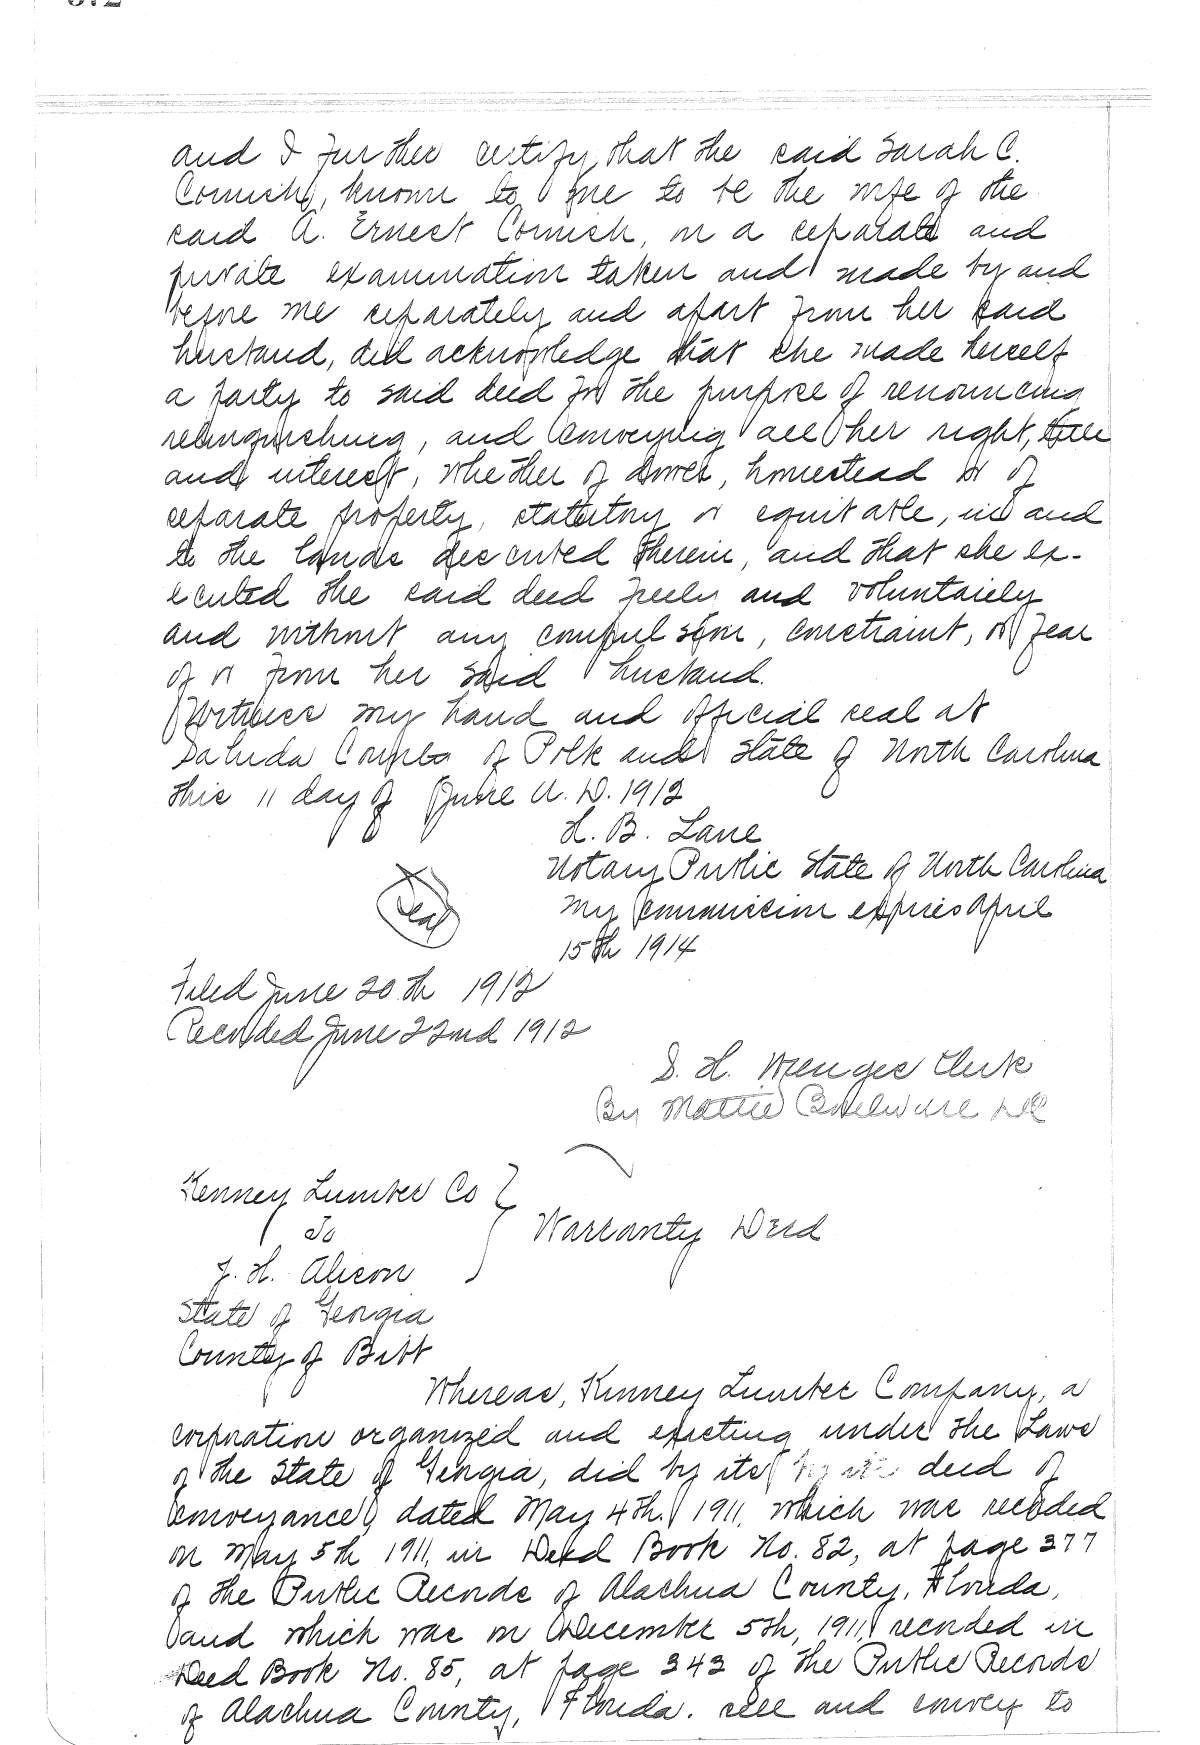 and I further certify, that the said Sarah C.
Cornish, known to me to be the wife of the
said A. Ernest Cornish, on a separate and
private examination taken and made by and
before me separately and apart from her said
husband, did acknowledge that she made herself
a party to said deed for the purpose of renouncing
relinquishing, and conveying all her right, title
and interest, whether of dower, homestead or of
separate property, statutory or equitable, in and
to the lands described therein, and that she ex-
ecuted the said deed freely and voluntarily
and without any compulsion, constraint, or fear
of or from her said husband.
Witness my hand and official seal at
Saluda County of Polk and State of North Carolina
this 11 day of June A. D. 1912
H. B. Lane
Notary Public State of North Carolina
Seal
My commission expires April
15th 1914
Filed June 20th 1912
Recorded June 22nd 1912
S. H. Wienges Clerk
By Mattie DC
Kenney Lumber Co
To
J. H. Alison
Warranty Deed
State of Georgia
County of Bibb
Whereas, Kenney Lumber Company, a
corporation organized and existing under the Laws
of the State of Georgia, did by its by its deed of
conveyance, dated May 4th. 1911, which was recorded
on May 5th 1911, in Deed Book No. 82, at page 377
of the Public Records of Alachua County, Florida,
and which was on December 5th, 1911, recorded in
Deed Book No. 85, at page 343 of the Public Records
of Alachua County, Florida. sell and convey to